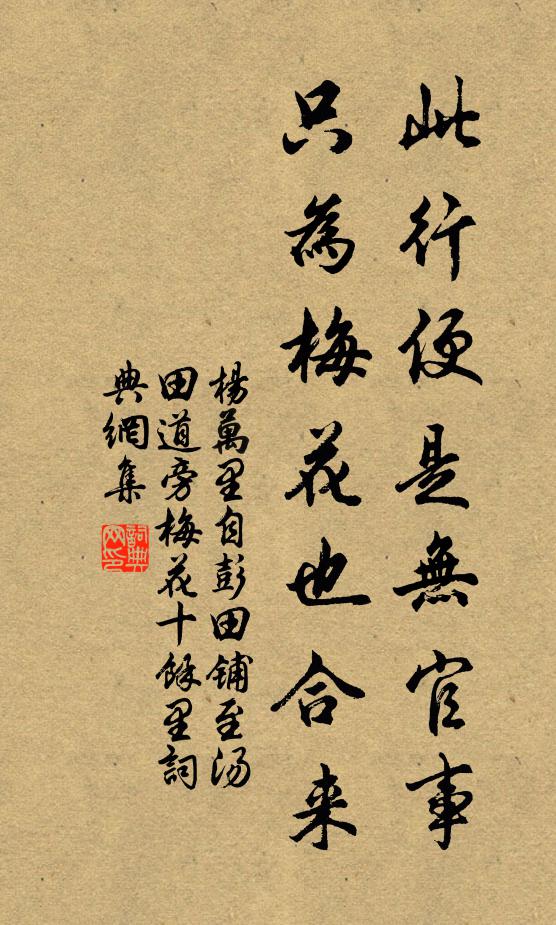 此行便是無官事
只為梅花也合来
楊萬里自彭田鋪至汤
田道旁梅花十餘里詞
典網集
詞典网印